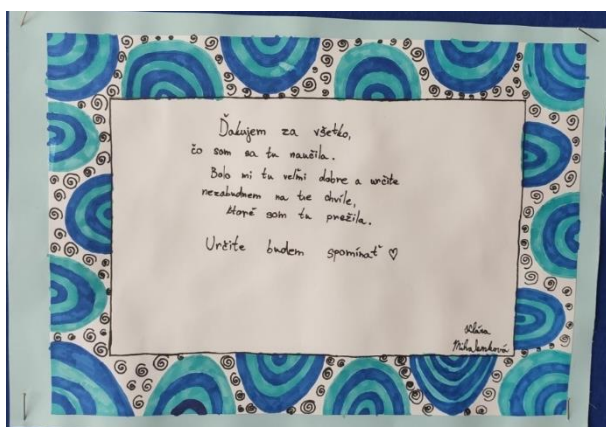 Ďakujem za všetko,
čo som sa tu naučila.
Bolo mi tu veľmi dobre a určite
nezabudnem na tie chvíle,
ktoré som tu prežila.
Určite budem spomínať ♡
Klára
Mihalenková